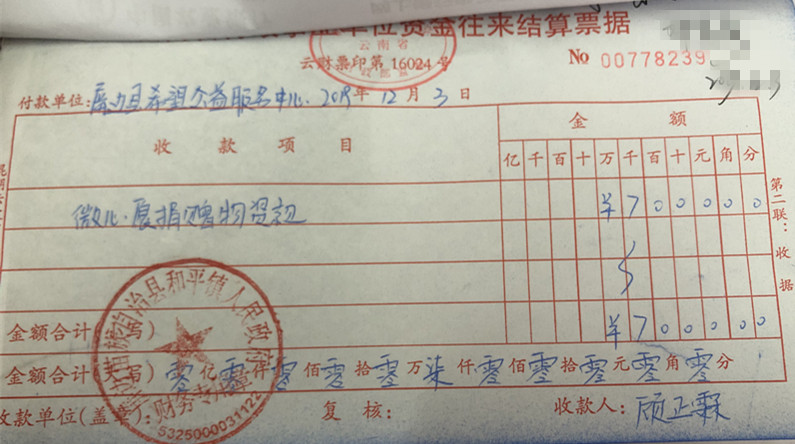 单位资金往来结算票据
云南省
云财票印第16024号 No 00778239
付款单位:屏边县希望公益服务中心 2019年12月3日
收款项目 金额
亿千百十万千百十元角分
微心愿捐赠物资款 ¥700000
第二联:收据
金额合计( 写) ¥700000
金额合计( 写)零亿零仟零佰零拾零万柒仟零佰零拾零元零角零分
收款单位(盖章): 复核: 收款人:
苗族自治县和平镇人民政府
财务专用章
5325000031122